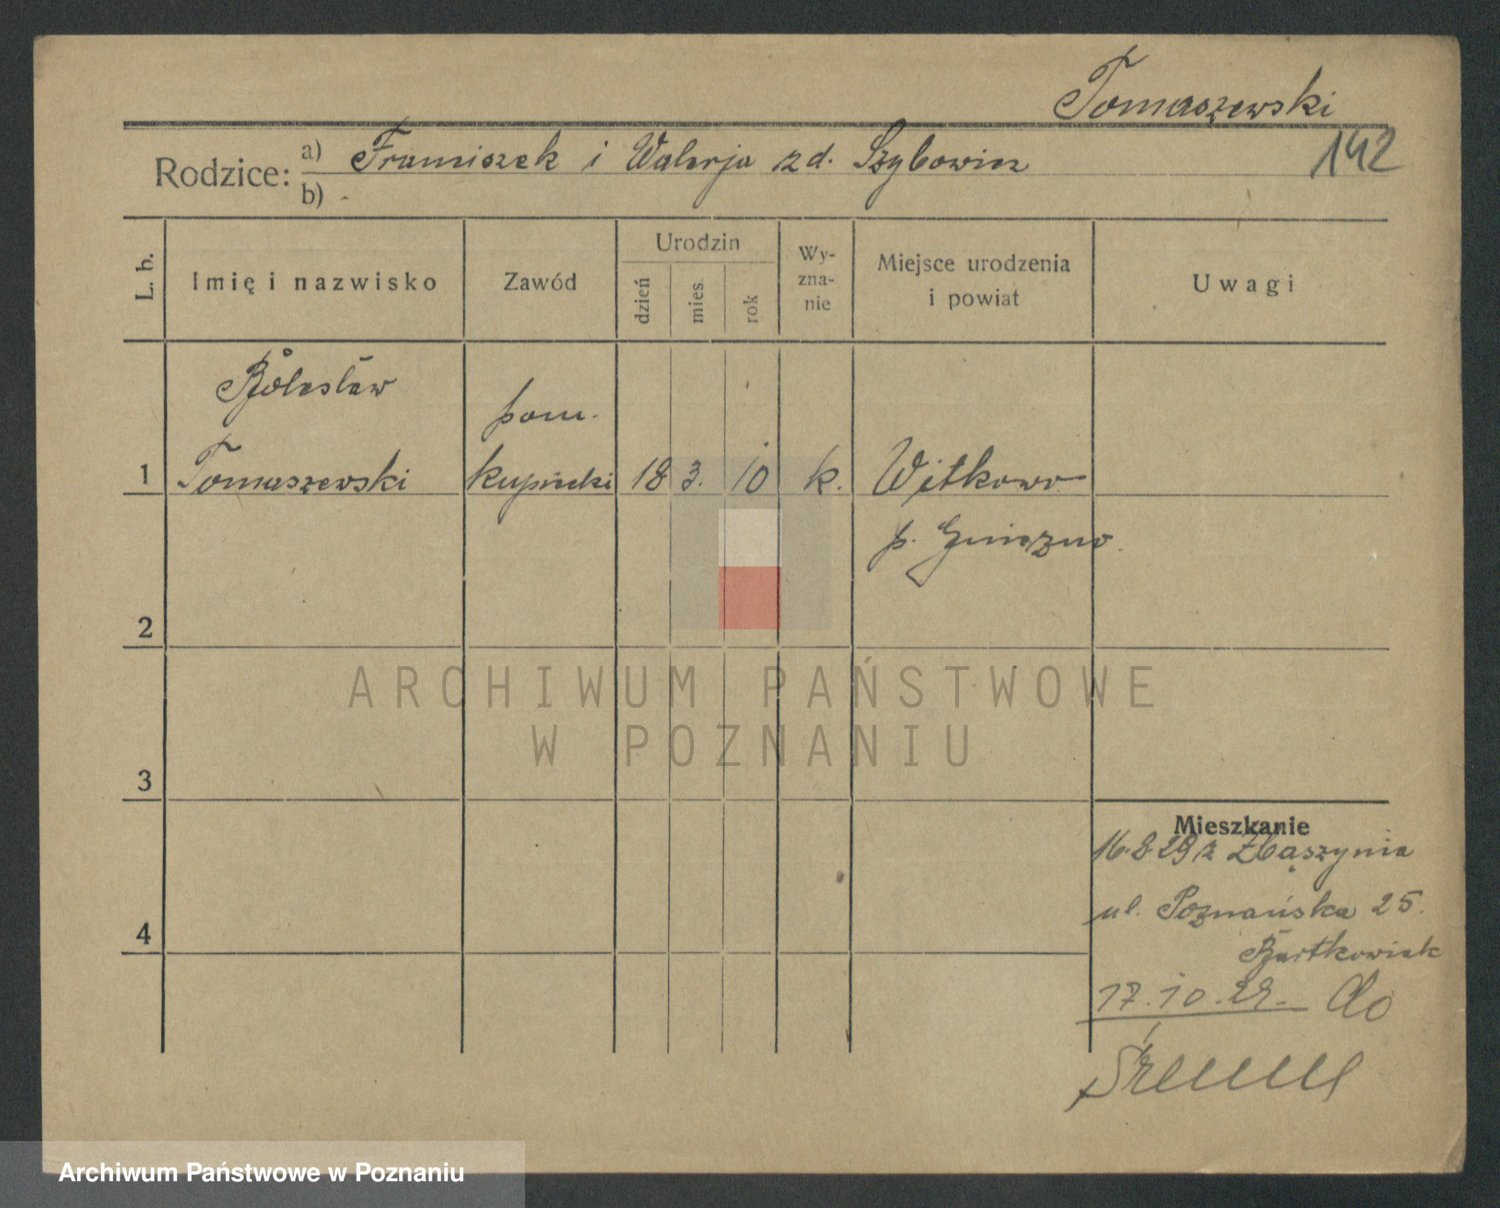 Tomaszewski
142
Rodzice: a) Franciszek i Walerja zd. Szybowicz
b)
L. b.
Imię i nazwisko
Zawód
Urodzin
dzień
mies.
rok
Wy-
zna-
nie
Miejsce urodzenia
i powiat
Uwagi
Bolesław
pom.
1 Tomaszewski kupiecki 18 3. 10 k. Witkowo
p. Gniezno.
2
ARCHIWUM PAŃSTWOWE
W POZNANIU
3
Mieszkanie
16.8.29 z Zbąszynia
ul. Poznańska 25.
4
Bartkowiak
17.10.29. do
Śremu
Archiwum Państwowe w Poznaniu